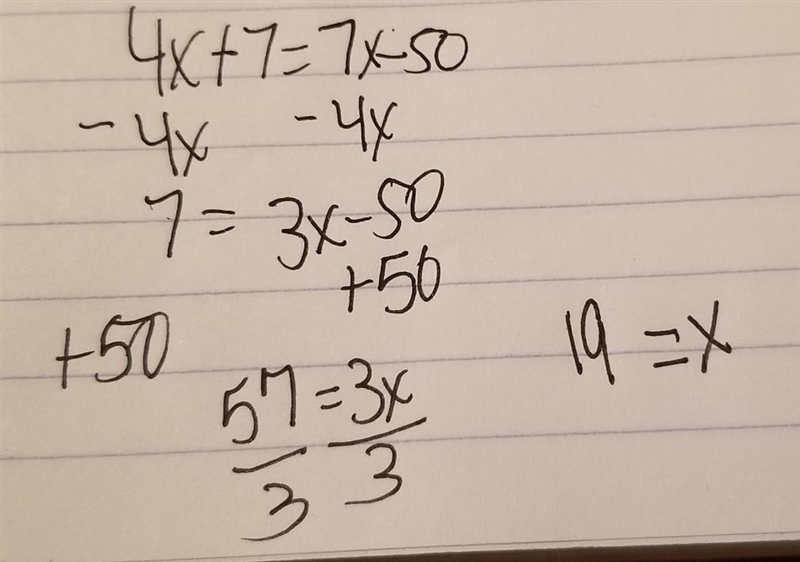 4x+7=7x-50
-4x -4x
7= 3x-50
+50
+50
57=3x
3 3
19=x